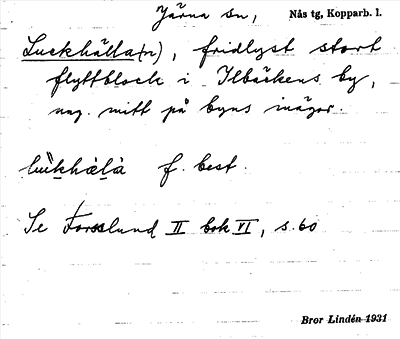 Järna sn, Nås tg, Kopparb. l.
Luckhälla(n), fridlyst stort
flyttblock i Ilbäckens by,
nag. mitt på byns inägor.
f. best.
Se Forsslund II bok VI, s. 60
Bror Lindén 1931